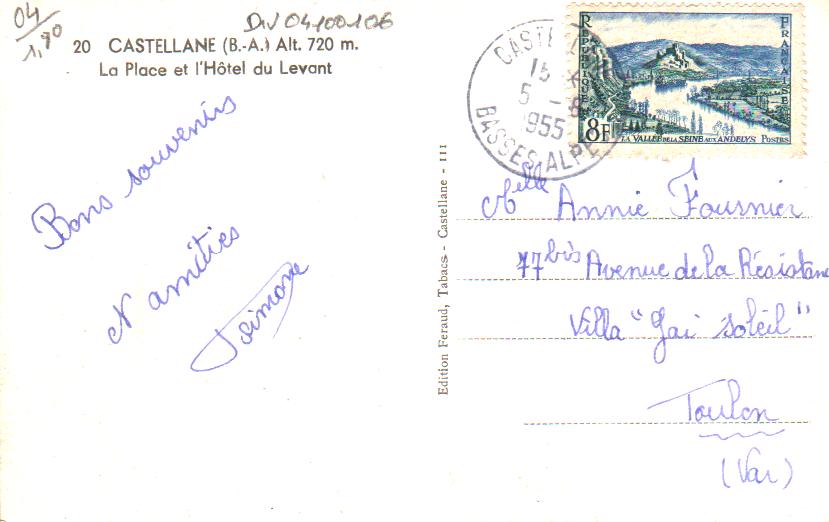 04
1,70
Div 04100106
20 CASTELLANE (B.-A.) Alt. 720 m.
La Place et l'Hôtel du Levant
Bons souvenirs
et amitiés
Simone
Edition Feraud, Tabacs - Castellane - 111
15
5 - 8
1955
BASSES ALPES
REPUBLIQUE FRANÇAISE
8F
LA VALLÉE DE LA SEINE AUX ANDELYS POSTES
Melle Annie Fournier
77 bis Avenue de la Résistance
Villa "Gai Soleil"
Toulon
(Var)